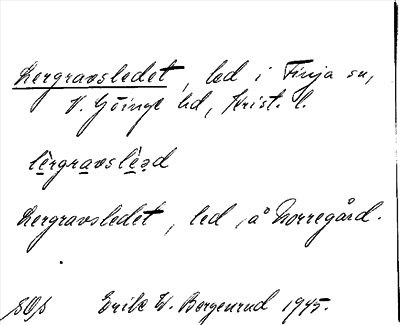 Lergravsledet, led i Finja sn,
V. Göinge hd, Krist. l.
lèrgravslèəd
Lergravsledet, led å Norregård.
SOS Erik W. Bergenrud 1945.